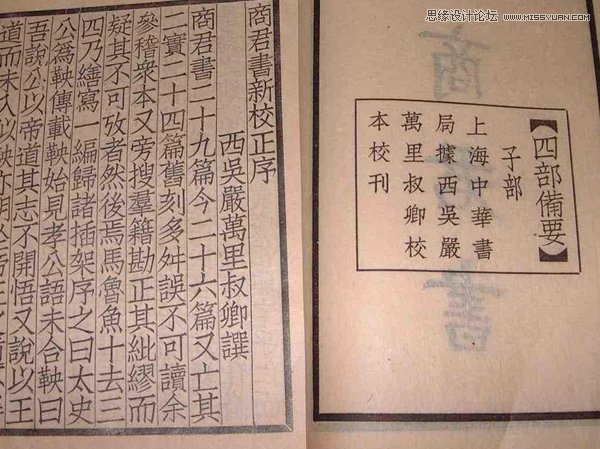 思缘设计论坛 WWW.MISSYUAN.COM
【四部備要】
子部
上海中華書
局據西吳嚴
萬里叔卿校
本校刊
商君書新校正序
西吳嚴萬里叔卿譔
商君書二十九篇今二十六篇又亡其
一實二十四篇舊刻多舛誤不可讀余
參稽衆本又旁搜羣籍勘正其紕繆而
疑其不可攷者然後焉馬魯魚十去三
四乃繕寫一編歸諸插架序之曰太史
公爲鞅傳載鞅始見孝公語未合鞅曰
吾說公以帝道其志不開悟又說以王
道而未入